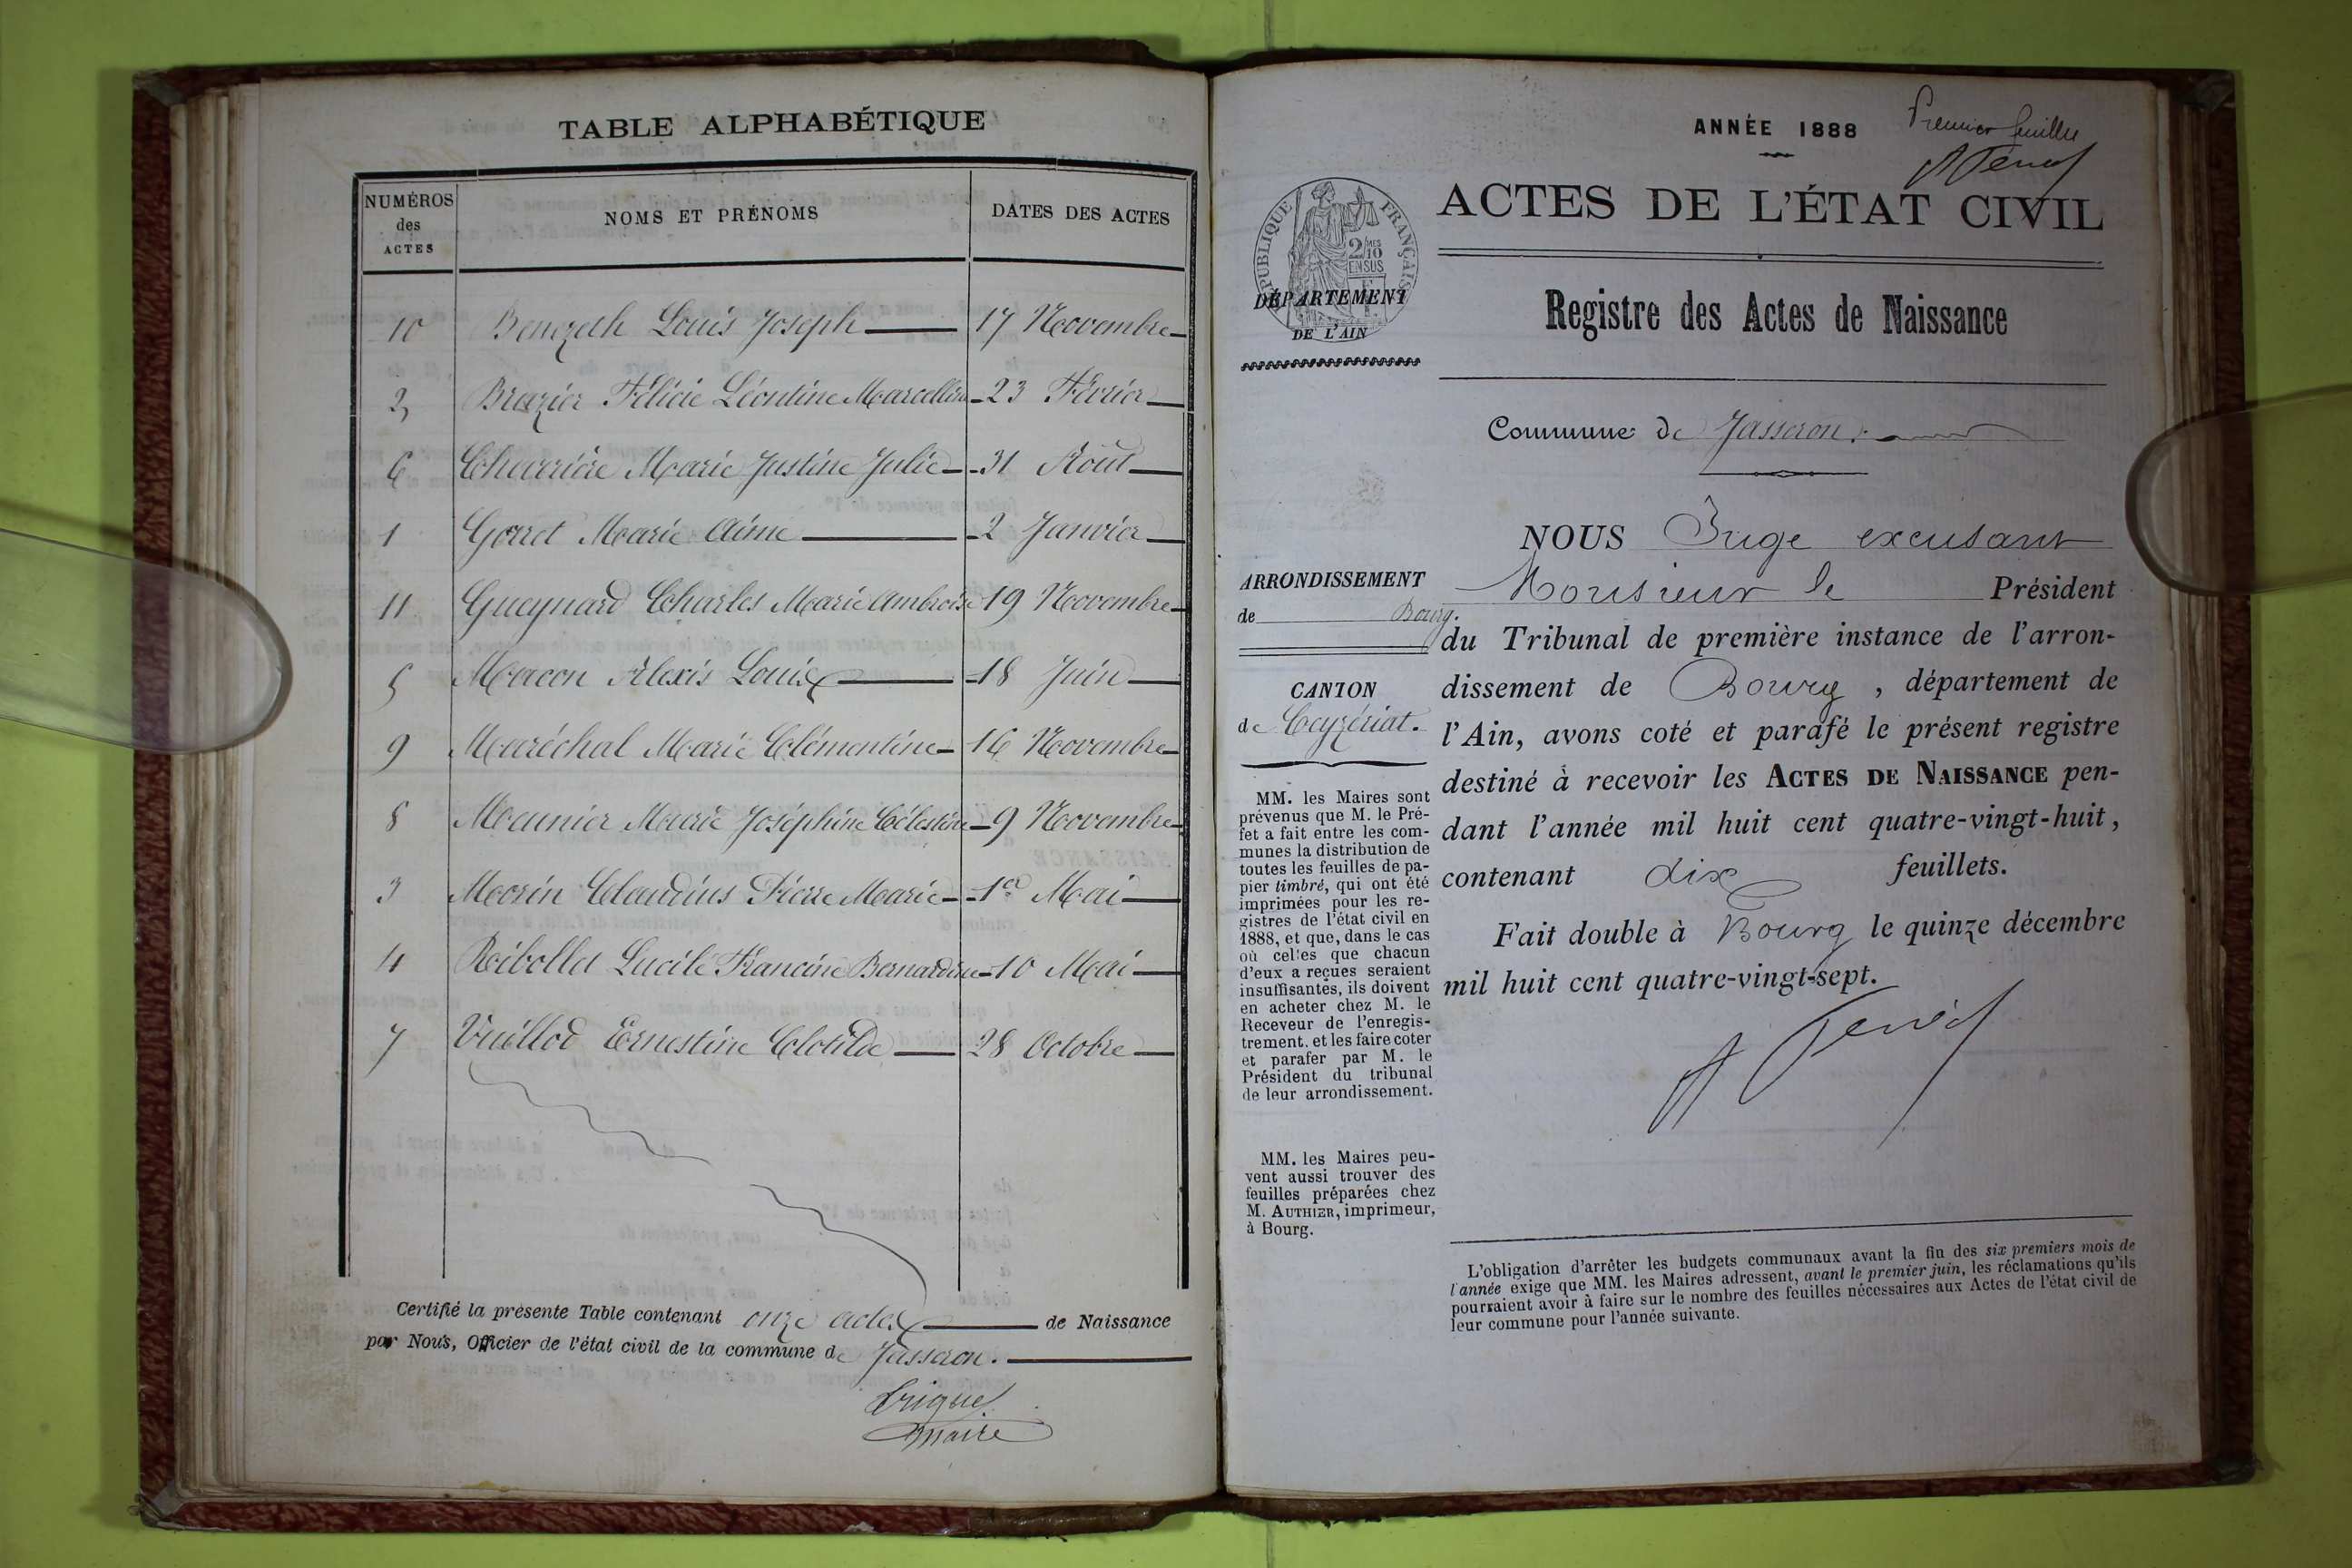 TABLE ALPHABÉTIQUE
NUMÉROS des ACTES NOMS ET PRÉNOMS DATES DES ACTES
10 Benezeth Louis Joseph 17 Novembre
2 Brazier Félicie Léontine Marcelline 23 Février
6 Marie Justine Julie 31 Août
1 Gorret Marie Aimé 2 Janvier
11 Gueynard Charles Marie Ambroise 19 Novembre
5 Macon Alexis Louis 18 Juin
9 Maréchal Marie Clémentine 16 Novembre
8 Meunier Marie Joséphine Célestine 9 Novembre
3 Morin Claudius Pierre Marie 1er Mai
4 Ribollet Lucile Francine Bernardine 10 Mai
7 Vuillod Ernestine Clotilde 28 Octobre
Certifié la présente Table contenant onze actes de Naissance
par Nous, Officier de l'état civil de la commune de Jasseron.
Maire
ANNÉE 1888
Premier feuillet
ACTES DE L'ÉTAT CIVIL
RÉPUBLIQUE FRANÇAISE
2 MES
10
EN SUS
DÉPARTEMENT
DE L'AIN
Registre des Actes de Naissance
Commune de Jasseron.
ARRONDISSEMENT
de Bourg.
CANTON
de Ceyzériat.
MM. les Maires sont
prévenus que M. le Pré-
fet a fait entre les com-
munes la distribution de
toutes les feuilles de pa-
pier timbré, qui ont été
imprimées pour les re-
gistres de l'état civil en
1888, et que, dans le cas
où celles que chacun
d'eux a reçues seraient
insuffisantes, ils doivent
en acheter chez M. le
Receveur de l'enregis-
trement, et les faire coter
et parafer par M. le
Président du tribunal
de leur arrondissement.
MM. les Maires peu-
vent aussi trouver des
feuilles préparées chez
M. AUTHIER, imprimeur,
à Bourg.
NOUS Juge excusant
Monsieur le Président
du Tribunal de première instance de l'arron-
dissement de Bourg, département de
l'Ain, avons coté et parafé le présent registre
destiné à recevoir les ACTES DE NAISSANCE pen-
dant l'année mil huit cent quatre-vingt-huit,
contenant dix feuillets.
Fait double à Bourg le quinze décembre
mil huit cent quatre-vingt-sept.
L'obligation d'arrêter les budgets communaux avant la fin des six premiers mois de
l'année exige que MM. les Maires adressent, avant le premier juin, les réclamations qu'ils
pourraient avoir à faire sur le nombre des feuilles nécessaires aux Actes de l'état civil de
leur commune pour l'année suivante.